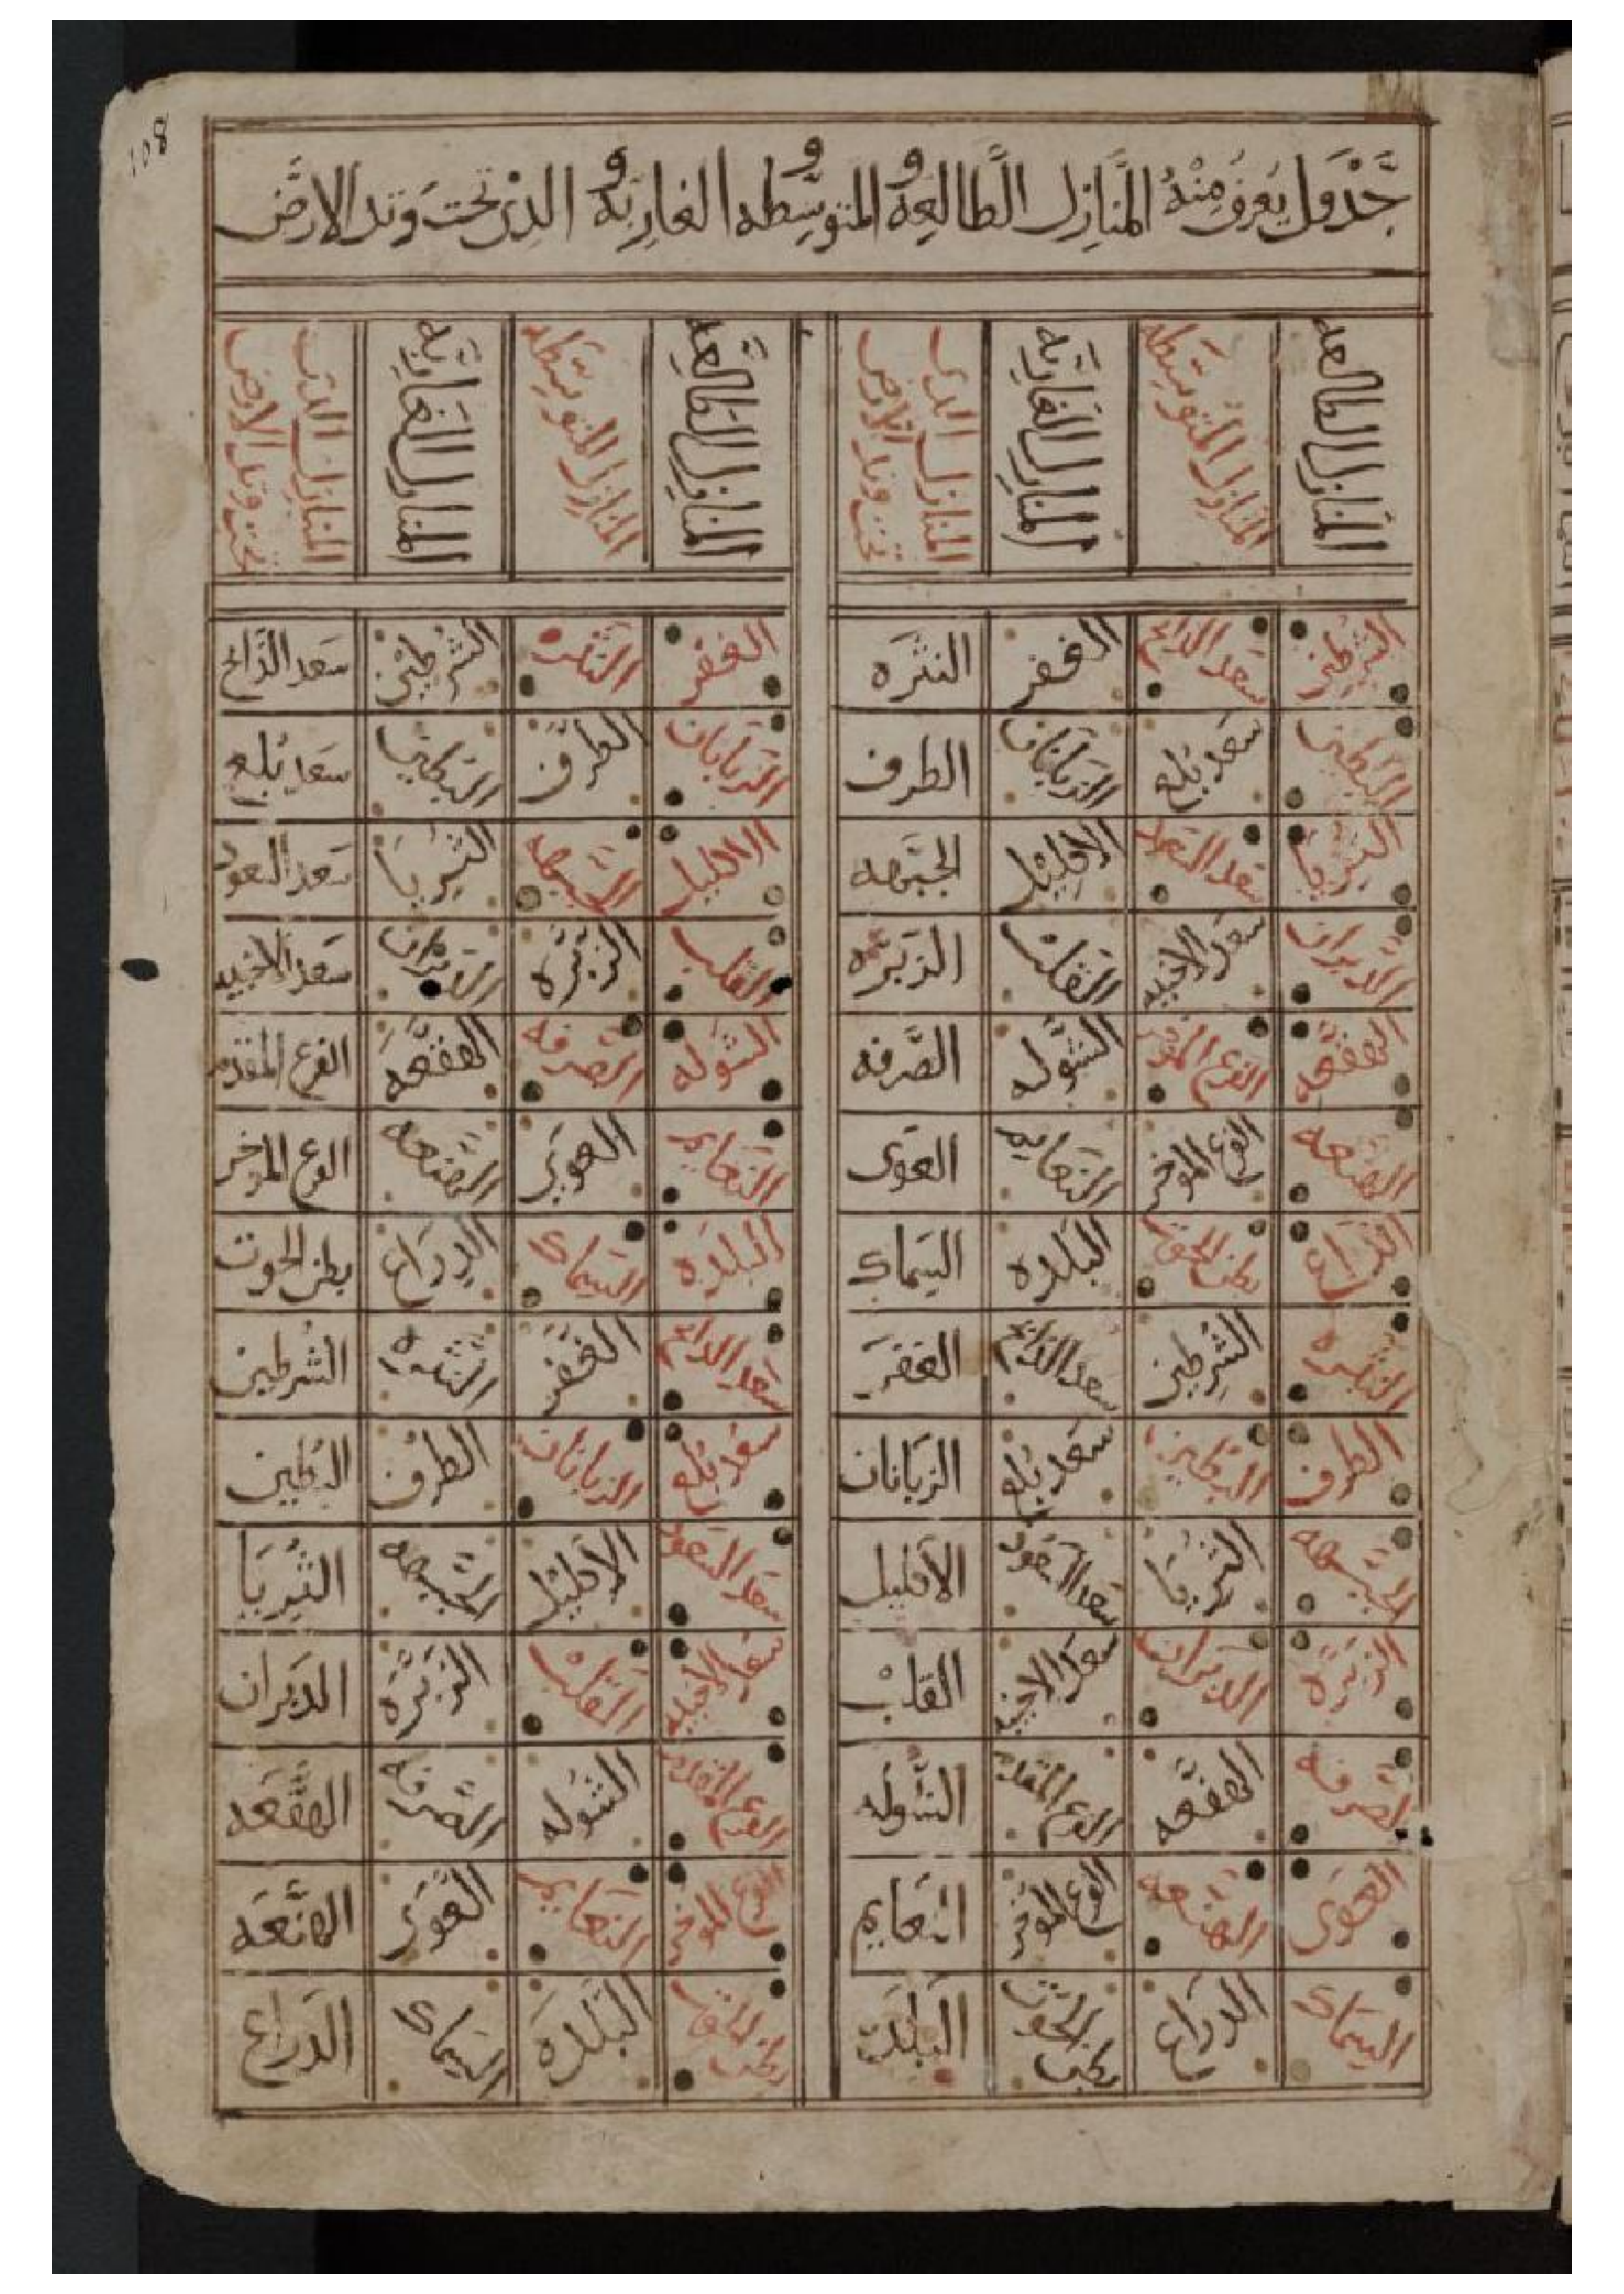 108
جدول يعرف منه المنازل الطالعه و المتوسطه و الغاربه و الذي تحت وتد الارض
المنازل الطالعه المنازل المتوسطه المنازل الغاربه المنازل الذى تحت وتد الارض المنازل الطالعه المنازل المتوسطه المنازل الغاربه المنازل الذى تحت وتد الارض
الشرطين سعد الذابح الغفر النثره الغفر النثره الشرطين سعد الذابح
البطين سعد بلع الزبانان الطرف الزبانان الطرف البطين سعد بلع
الثريا سعد السعود الاكليل الجبهه الاكليل الجبهه الثريا سعد السعود
الدبران سعد الاخبيه القلب الزبره القلب الزبره الدبران سعد الاخبيه
الهقعه الفرع المقدم الشوله الصرفه الشوله الصرفه الهقعه الفرع المقدم
الهنعه الفرع الموخر النعايم العوى النعايم العوى الهنعه الفرع الموخر
الذراع بطن الحوت البلده السماك البلده السماك الذراع بطن الحوت
النثره الشرطين سعد الذابح الغفر سعد الذابح الغفر النثره الشرطين
الطرف البطين سعد بلع الزبانان سعد بلع الزبانان الطرف البطين
الجبهه الثريا سعد السعود الاكليل سعد السعود الاكليل الجبهه الثريا
الزبره الدبران سعد الاخبيه القلب سعد الاخبيه القلب الزبره الدبران
الصرفه الهقعه الفرع المقدم الشوله الفرع المقدم الشوله الصرفه الهقعه
العوى الهنعه الفرع الموخر النعايم الفرع الموخر النعايم العوى الهنعه
السماك الذراع بطن الحوت البلدة بطن الحوت البلده السماك الذراع